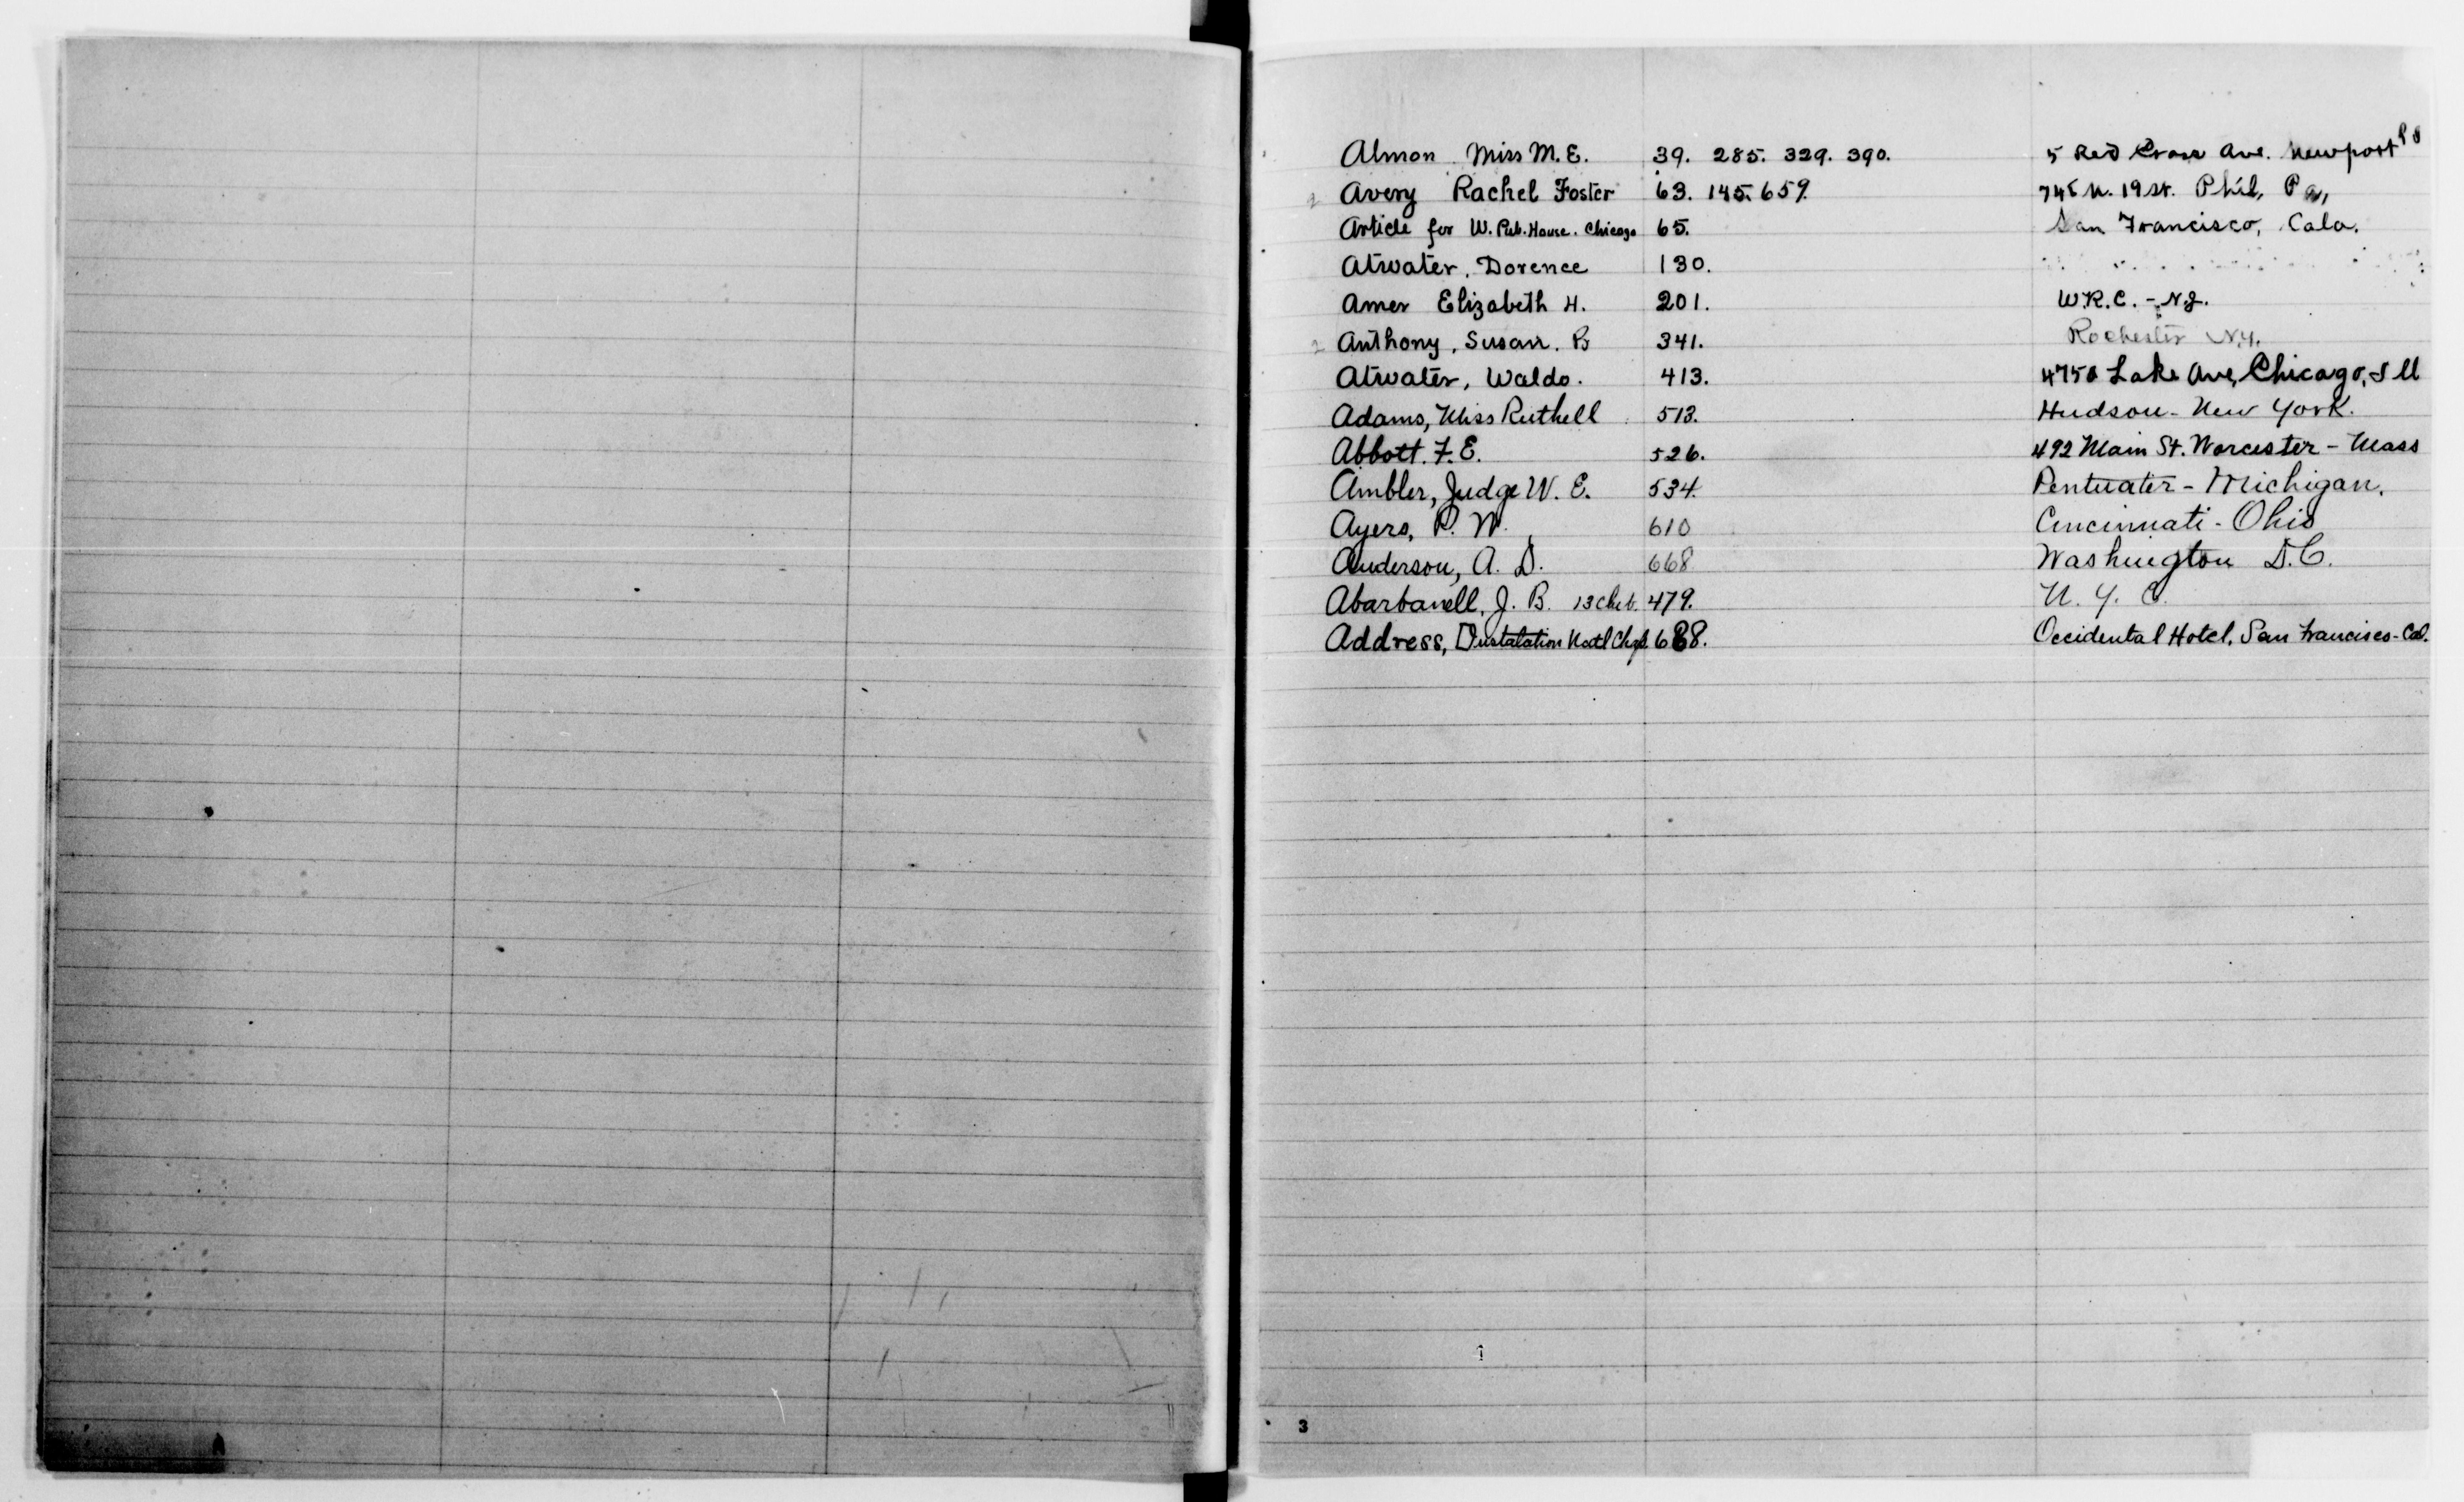 Almon Miss M. E. 39. 285. 329. 390. 5 Red Cross Ave. Newport
2 Avery Rachel Foster 63. 145. 659. 745 N. 19 St. Phil, Pa,
Article for W. Pub. House. Chicago 65. San Francisco, Cala.
Atwater, Dorence 130.
Amer Elizabeth H. 201. W.R.C. - N.J.
2 Anthony, Susan. B 341. Rochester N.Y.
Atwater, Waldo. 413. Lake Ave, Chicago, Ill
Adams, Miss Ruthell 513. Hudson - New York.
Abbott. F. E. 526. 492 Main St. Worcester - Mass
Ambler, Judge W. E. 534. Pentwater - Michigan.
Ayers, P. W. 610 Cincinnati - Ohio
Anderson, A. D. 668 Washington D.C.
Abarbanell, J. B. 479. N. Y. C.
Address, Instalation Natl 688. Occidental Hotel, San Francisco - Cal.
3